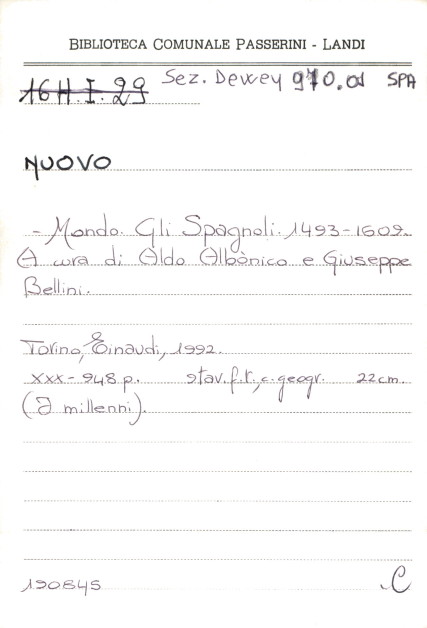 BIBLIOTECA COMUNALE PASSERINI - LANDI
16 H.I.29 Sez. Dewey 970.01 SPA
NUOVO
- Mondo. Gli Spagnoli. 1493-1609.
A cura di Aldo Albònico e Giuseppe
Bellini.
Torino, Einaudi, 1992.
XXX-948 p. tav.f.t., c. geogr. 22 cm.
(I millenni).
190845
C